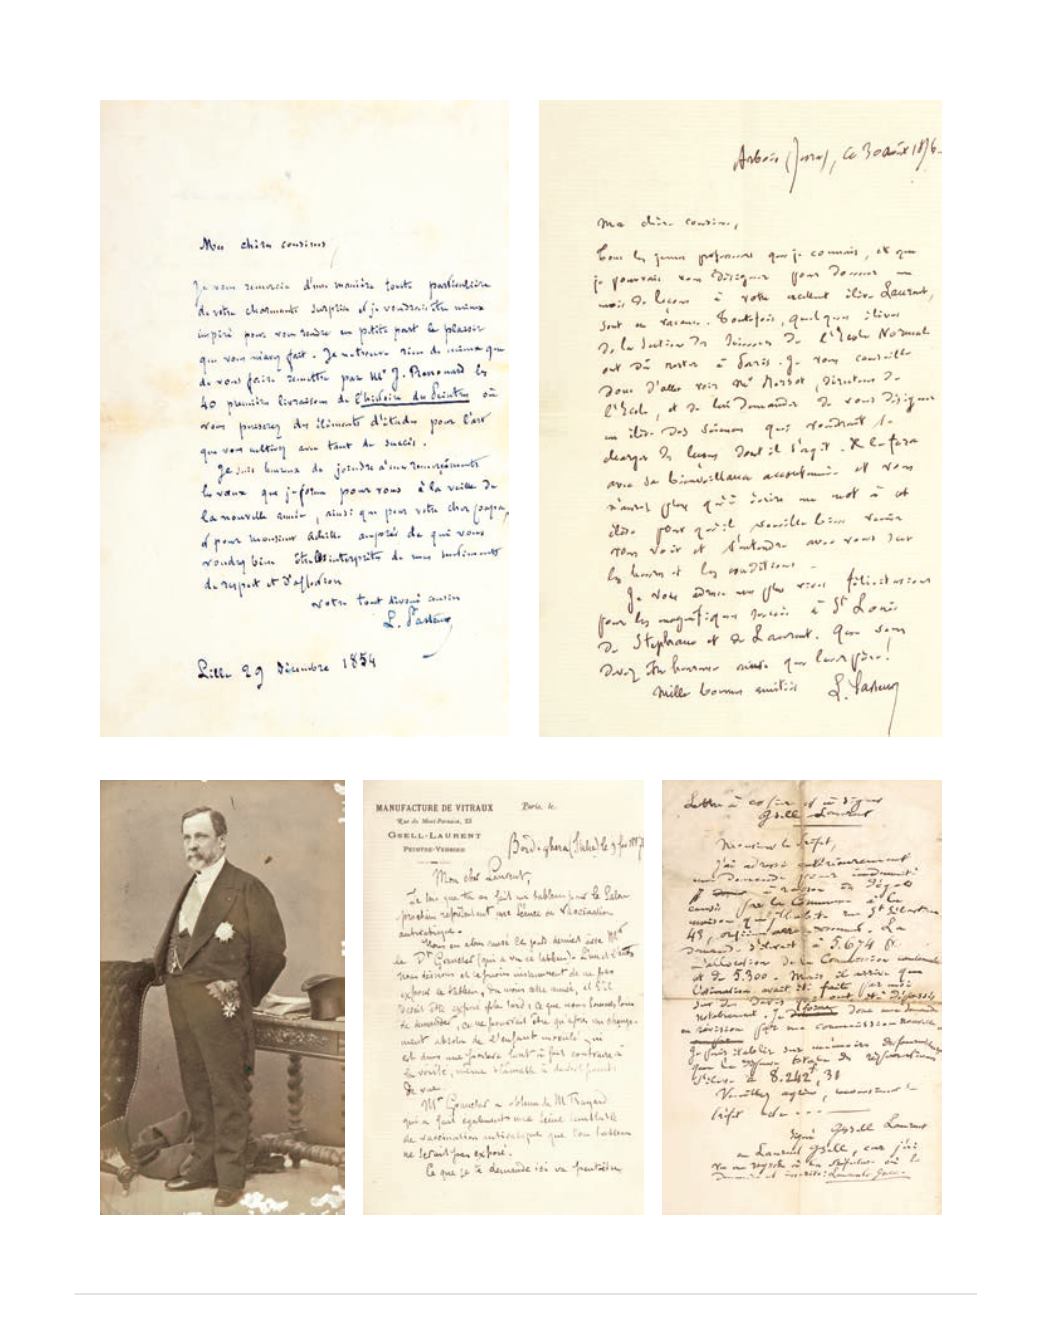 Ma chère cousine,
Je vous remercie d'une manière toute particulière
de votre charmante surprise et je voudrais être mieux
inspiré pour vous rendre en petite part le plaisir
que vous m'avez fait. Je ne trouve rien de mieux que
de vous faire remettre par Mr J.
40 premières livraisons de l'histoire des Peintres où
vous puiserez des éléments d'étude pour l'art
que vous cultivez avec tant de succès.
Je suis heureux de joindre à mes remerciements
les vœux que je forme pour vous à la veille de
la nouvelle année, ainsi que pour votre cher papa,
et pour monsieur Achille auprès de qui vous
voudrez bien être l'interprète de mes sentiments
de respect et d'affection
votre tout dévoué cousin
L. Pasteur
Lille 29 Décembre 1854
Arbois (Jura), ce 30 août 1876.
Ma chère cousine,
Tous les jeunes professeurs que je connais, et que
je pourrais vous désigner pour donner un
mois de leçons à votre excellent élève Laurent,
sont en vacances. Toutefois, quelques élèves
de la Section des Sciences de l'Ecole Normale
ont dû rester à Paris. Je vous conseille
donc d'aller voir Mr Bersot, directeur de
l'Ecole, et de lui demander de vous désigner
un élève des Sciences qui voudrait se
charger des leçons dont il s'agit. Il le fera
avec sa bienveillance accoutumée et vous
n'aurez plus qu'à écrire un mot à cet
élève pour qu'il veuille bien venir
vous voir et s'entendre avec vous sur
les heures et les conditions.
Je vous adresse mes plus vives félicitations
pour les magnifiques succès à St Louis
de Stéphane et de Laurent. Que vous
devez être heureuse ainsi que leur père!
Mille bonnes amitiés L. Pasteur
MANUFACTURE DE VITRAUX Paris, le
Rue du Mont-Parnasse, 23
GSELL-LAURENT
PEINTRE-VERRIER
Bordighera (Italie) le 9 1887
Mon cher Laurent,
Je lis que tu as fait un tableau pour le Salon
prochain représentant une séance de Vaccination
antirabique.
Nous en avons causé ce jeudi dernier avec Mr
le Dr Grancher (qui a vu ce tableau).
nous désirons et je crois instamment de ne pas
exposer ce tableau, du moins cette année, et s'il
devait être exposé plus tard, ce que nous
te demander, ce ne pourrait être qu'après un change-
ment absolu de l'enfant inoculé qui
est dans une posture tout à fait contraire à
la vérité, même blâmable à divers points
de vue.
Mr Grancher a obtenu de M.
qui a fait également une scène semblable
de vaccination antirabique que son tableau
ne serait pas exposé.
Ce que je te demande ici va peut-être
Lettre à copier et à signer
Gsell Laurent
Monsieur le Préfet,
J'ai adressé antérieurement
une demande pour indemnité
à raison de dégâts
causés par la Commune à la
maison que j'habite rue St Sébastien
43, arrondissement. La
demande s'élevait à 5.674 fr.
l'allocation de la Commission cantonale
est de 5.300. Mais il arrive que
l'évaluation avait été faite par moi
sur des devis qui ont été dépassés
notablement. Je forme donc une demande
en révision
Je puis établir sur mémoires
que la dépense totale de réparations
s'élève à 8.242f,31
Veuillez agréer, monsieur le
Préfet
signé Gsell Laurent
ou Laurent Gsell, car j'ai